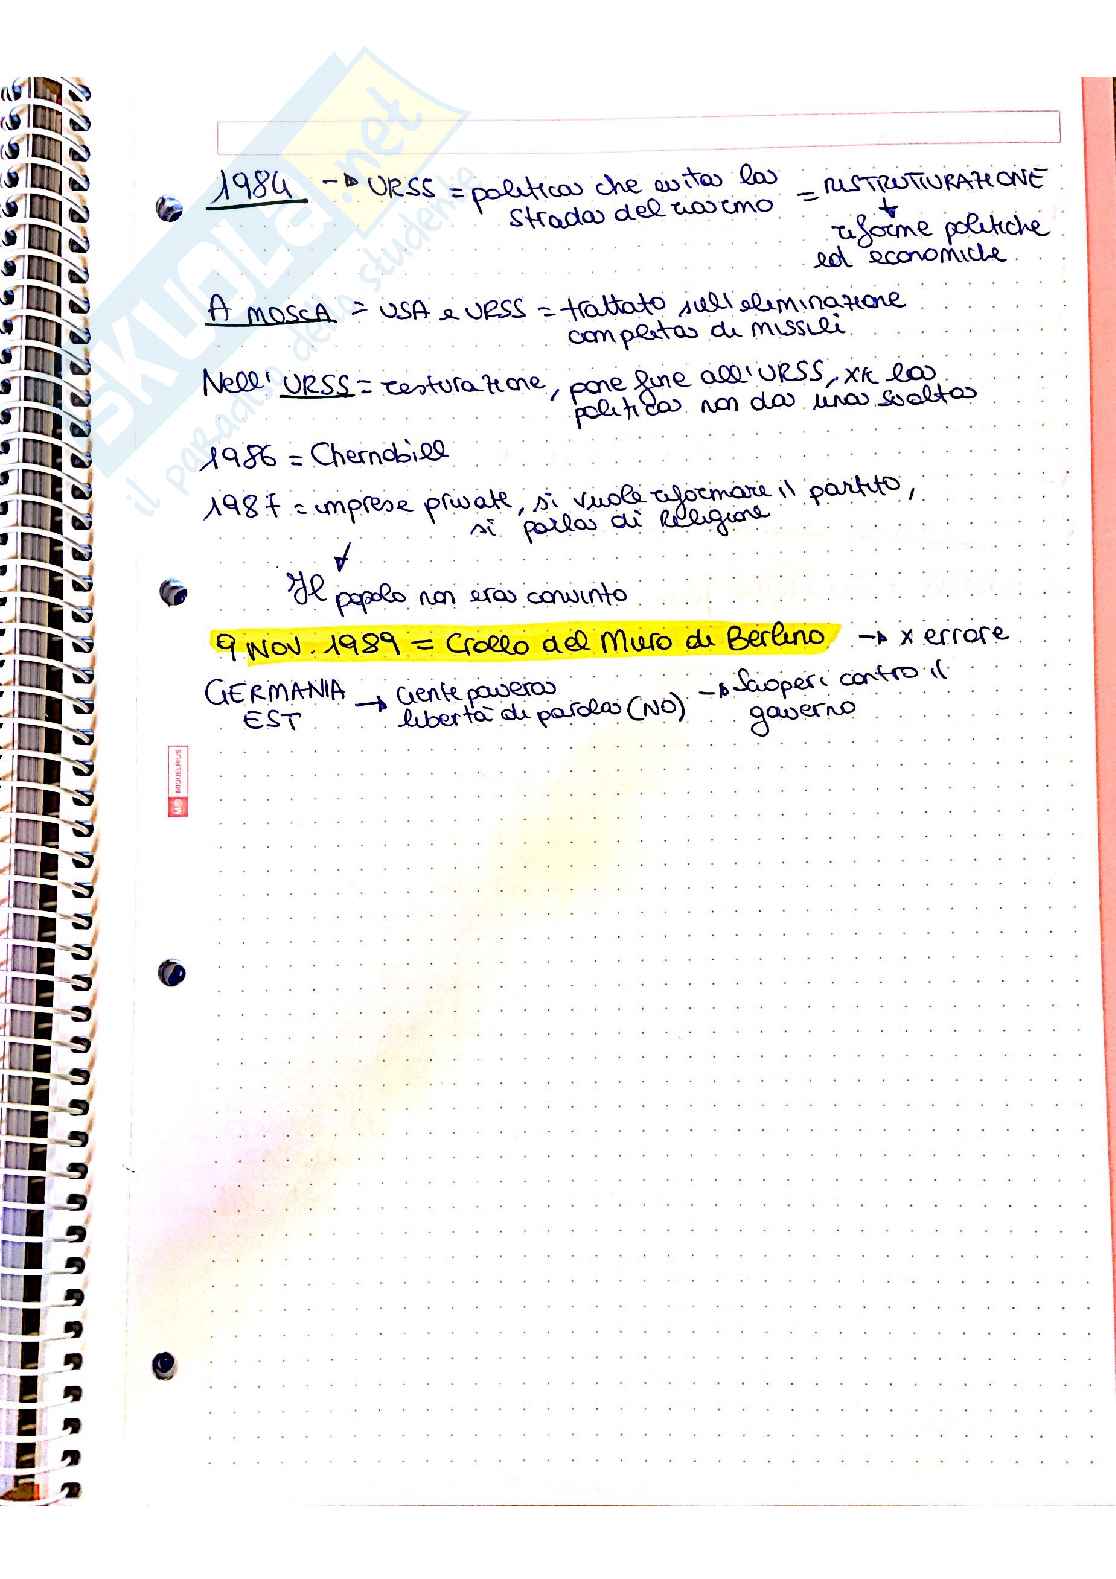 SKUOLA.net
il paradiso dello studente
1984 → URSS = politica che evita la = RISTRUTTURAZIONE
strada del riarmo
riforme politiche
ed economiche
A MOSCA = USA e URSS = trattato sull'eliminazione
completa di missili
Nell' URSS = resturazione, pone fine all'URSS, xk la
politica non da una svolta
1986 = Chernobill
1987 = imprese private, si vuole riformare il partito,
si parla di religione
Il popolo non era convinto
9 NOV. 1989 = Crollo del Muro di Berlino → x errore
GERMANIA → Gente povera → Scioperi contro il
EST libertà di parola (NO) governo